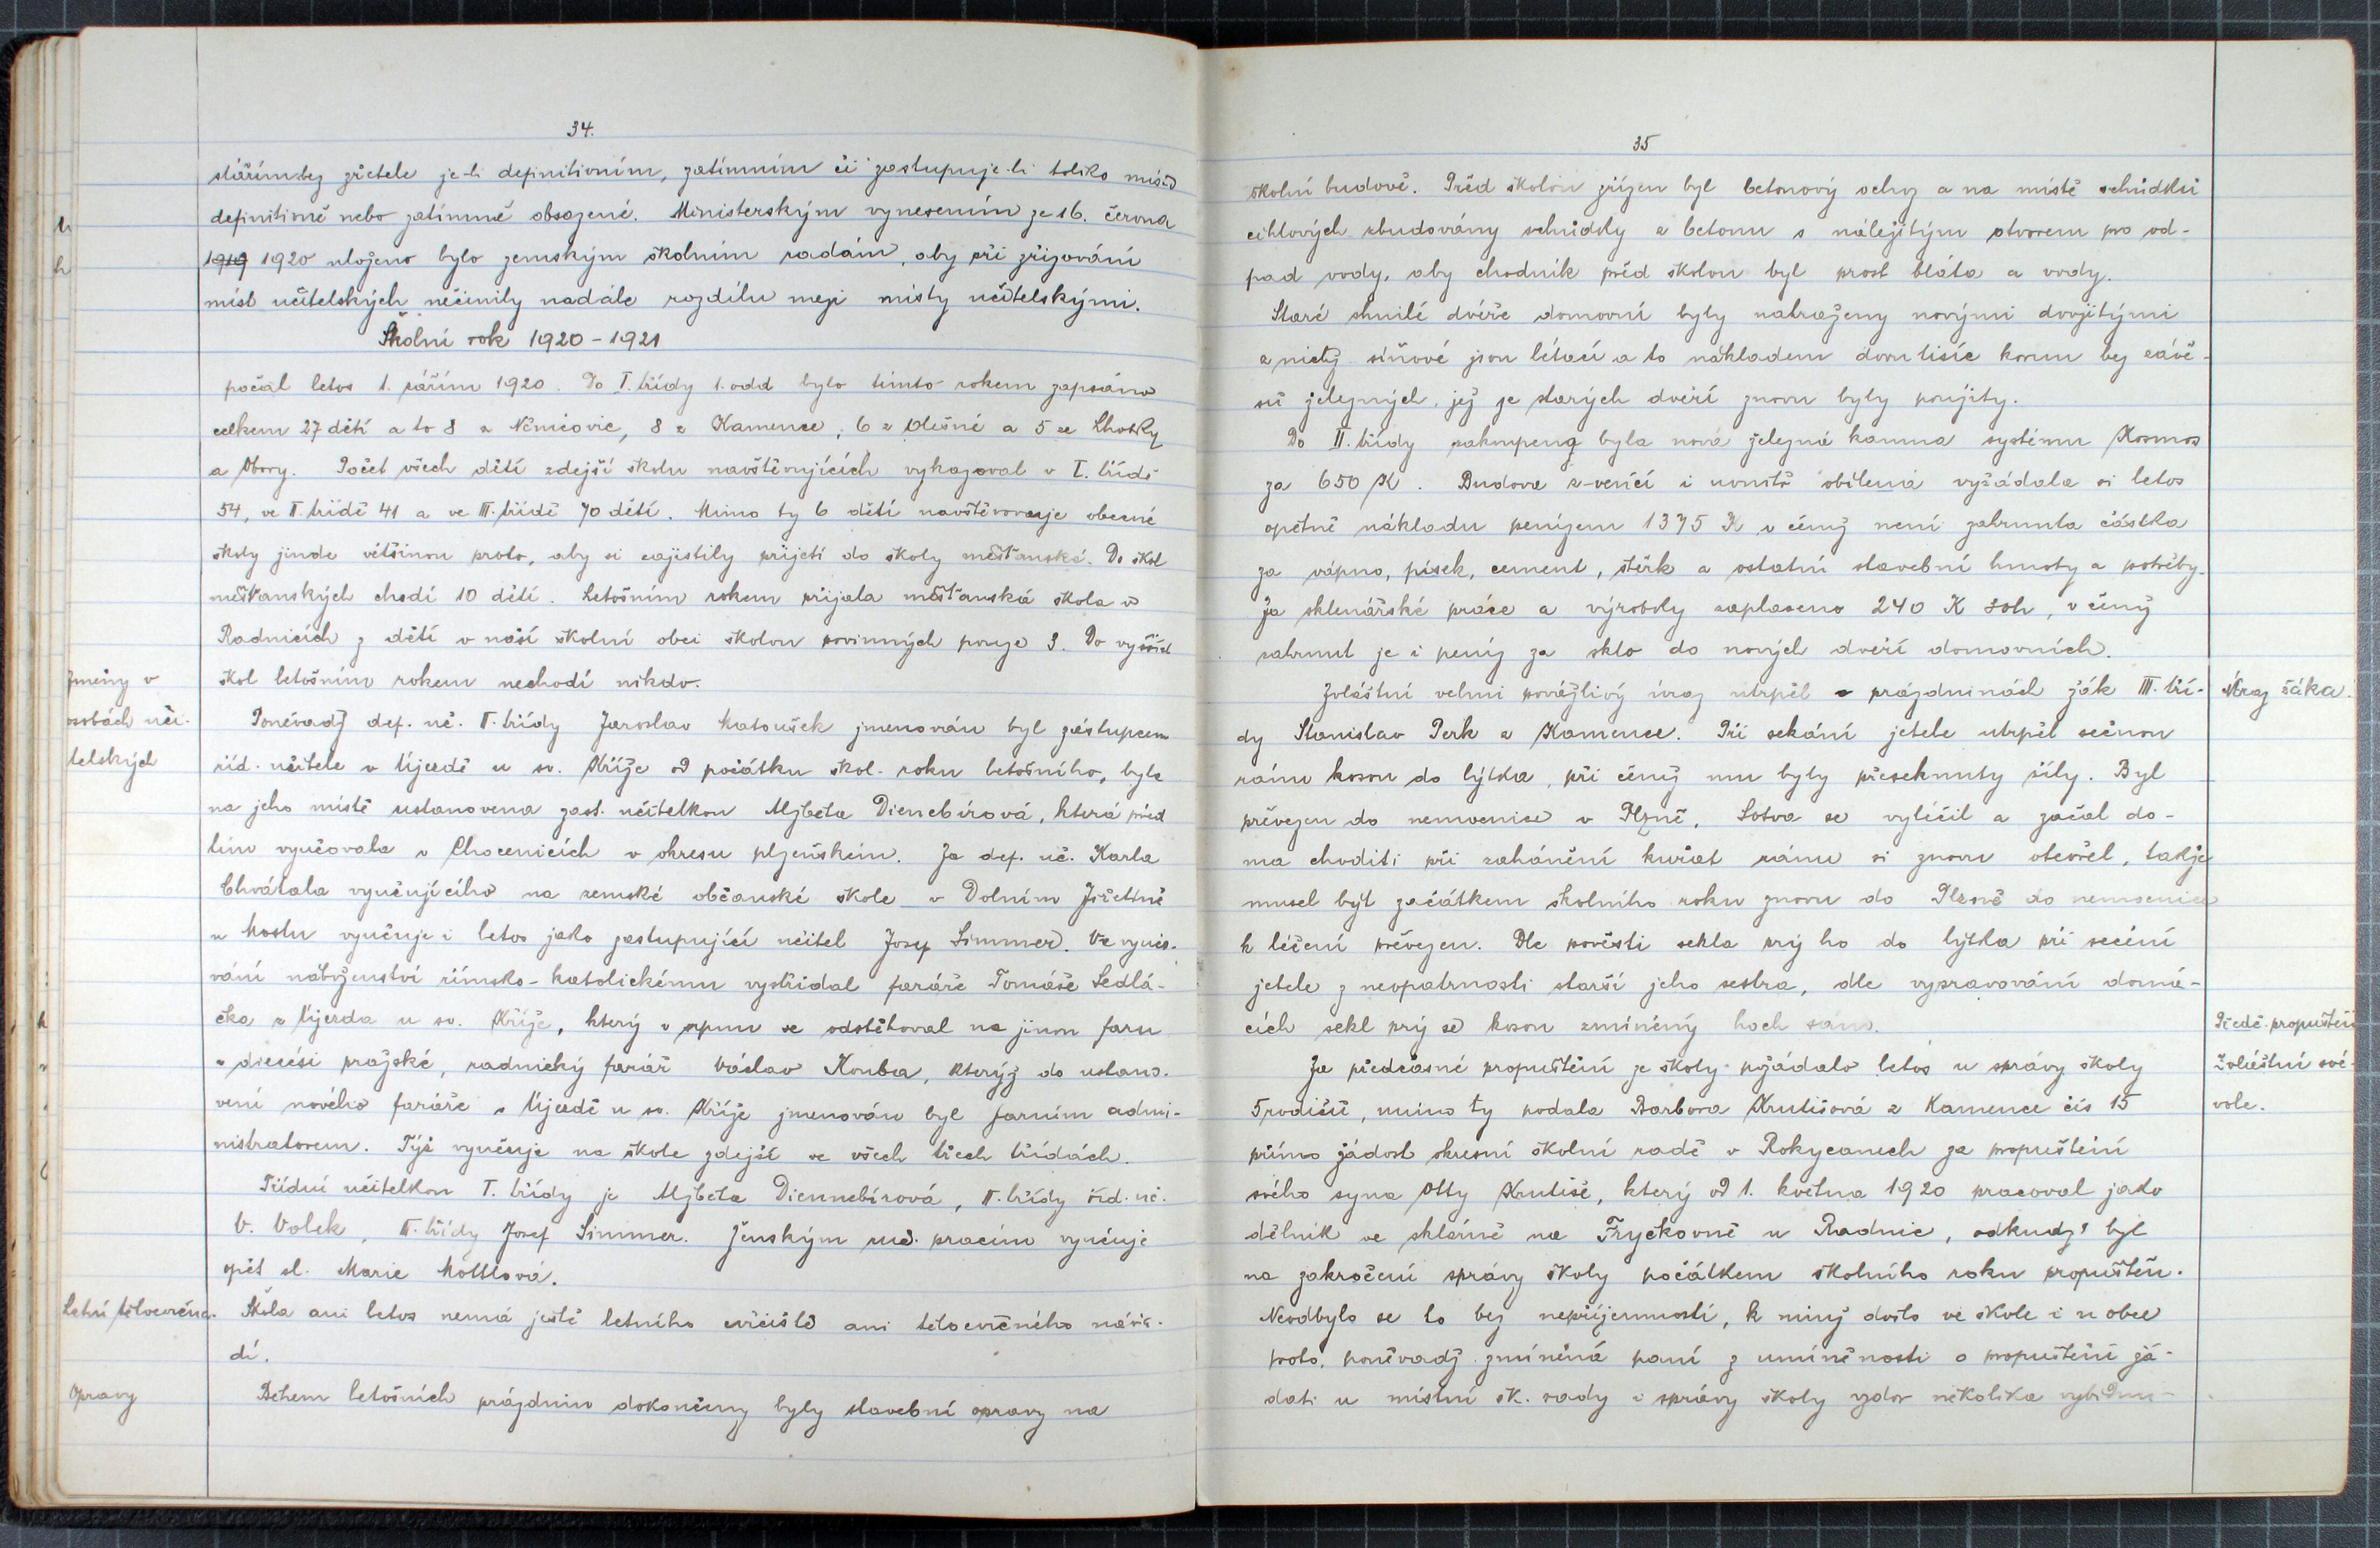 34.
stářím bez zřetele je-li definitivním, zatímním či zastupuje-li toliko místo
definitivně nebo zatímně obsazené. Ministerským vynesením ze 16. června
1919 1920 uloženo bylo zemským školním radám, aby při zřizování
míst učitelských nečinily nadále rozdílu mezi místy učitelskými.
Školní rok 1920 - 1921
počal letos 1. zářím 1920. Do I. třídy 1. odd bylo tímto rokem zapsáno
celkem 27 dětí a to 8 z Němčovic, 8 z Kamence, 6 z Olešné a 5 ze Lhotky
a Obory. Počet všech dětí zdejší školu navštěvujících vykazoval v I. třídě
54, ve II. třídě 41 a ve III. třídě 70 dětí. Mimo ty 6 dětí navštěvovuje obecné
školy jinde většinou proto, aby si zajistily přijetí do školy měšťanské. Do škol
měšťanských chodí 10 dětí. Letošním rokem přijala měšťanská škola v
Radnicích z dětí v naší školní obci školou povinných pouze 3. Do vyšších
škol letošním rokem nechodí nikdo.
Změny v
osobách uči-
telských
Poněvadž def. uč. II. třídy Jaroslav Matoušek jmenován byl zástupcem
říd. učitele v Újezdě u sv. Kříže od počátku škol. roku letošního, byla
na jeho místě ustanovena zast. učitelkou Alžběta Dienebírová, která před
tím vyučovala v Chocenicích v okresu plzeňském. Za def. uč. Karla
Chvátala vyučujícího na zemské občanské škole v Dolním Jiřetíně
u Mostu vyučuje i letos jako zastupující učitel Josef Simmer. Ve vyučo-
vání náboženství římsko-katolickému vystřídal faráře Tomáše Sedlá-
čka z Újezda u sv. Kříže, který v srpnu se odstěhoval na jinou faru
v diecési pražské, radnický farář Václav Kouba, kterýž do ustano-
vení nového faráře v Újezdě u sv. Kříže jmenován byl farním admi-
nistratorem. Týž vyučuje na škole zdejší ve všech třech třídách.
Třídní učitelkou I. třídy je Alžběta Diennebírová, II. třídy říd. uč.
V. Volek, III. třídy Josef Simmer. Ženským ruč. pracím vyučuje
opět sl. Marie Möttlová.
Letní tělocvična.
Škola ani letos nemá ještě letního cvičiště ani tělocvičného nářa-
dí.
Opravy
Během letošních prázdnin dokončeny byly stavební opravy na
35
školní budově. Před školou zřízen byl betonový schoz a na místě schůdků
cihlových zbudovány schůdky z betonu s náležitým otvorem pro od-
pad vody, aby chodník před školou byl prost bláta a vody.
Staré shnilé dvéře domovní byly nahraženy novými dvojitými
z nichž síňové jsou lítací a to nákladem dvou tisíc korun bez závě-
sů železných, jež ze starých dveří znovu byly použity.
Do II. třídy zakoupena byla nová železná kamna systému Kosmos
za 650 K. Budova z-venčí i uvnitř obílená vyžádala si letos
opětně nákladu penízem 1375 K v čemž není zahrnuta částka
za vápno, písek, cement, štěrk a ostatní stavební hmoty a potřeby.
Za sklenářské práce a výrobky zaplaceno 240 K 20h, v čemž
zahrnut je i peníz za sklo do nových dveří domovních.
Úraz žáka.
Zvláštní velmi povážlivý úraz utrpěl o prázdninách žák III. tří-
dy Stanislav Perk z Kamence. Při sekání jetele utrpěl sečnou
ránu kosou do lýtka, při čemž mu byly přeseknuty šíly. Byl
převezen do nemocnice v Plzně. Sotva se vyléčil a začal do-
ma choditi při zahánění kuřat ránu si znovu otevřel, takže
musel být začátkem školního roku znovu do Plzně do nemocnice
k léčení převezen. Dle pověsti sekla prý ho do lýtka při sečení
jetele z neopatrnosti starší jeho sestra, dle vypravování domá-
cích sekl prý se kosou zmíněný hoch sám.
Předč. propuštění
Zvláštní své-
vole.
Za předčasné propuštění ze školy požádalo letos u správy školy
5 rodičů, mimo ty podala Barbora Krutišová z Kamence čís 15
přímo žádost okresní školní radě v Rokycanech za propuštění
svého syna Otty Krutiše, který od 1. května 1920 pracoval jako
dělník ve sklárně na Fryčkovně u Radnic, odkudž byl
na zakročení správy školy počátkem školního roku propuštěn.
Neodbylo se to bez nepříjemností, k nimž došlo ve škole i u obce
proto, poněvadž zmíněná paní z umíněnosti o propuštění žá-
dati u místní šk. rady i správy školy vzdor několika vybídnu-